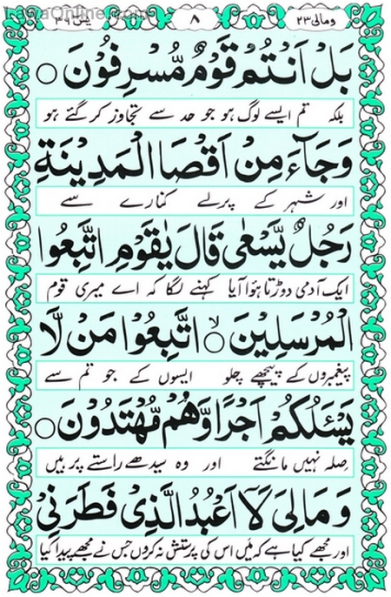 ومالی ۲۳
۸
یٰسٓ ۳۶
بَلْ اَنْتُمْ قَوْمٌ مُّسْرِفُوْنَ ○
بلکہ تم ایسے لوگ ہو جو حد سے تجاوز کر گئے ہو
وَجَآءَ مِنْ اَقْصَا الْمَدِيْنَةِ
اور شہر کے پرلے کنارے سے
رَجُلٌ يَّسْعٰى قَالَ يٰقَوْمِ اتَّبِعُوا
ایک آدمی دوڑتا ہوا آیا کہنے لگا کہ اے میری قوم
الْمُرْسَلِيْنَ ○ۙ اتَّبِعُوْا مَنْ لَّا
پیغمبروں کے پیچھے چلو ایسوں کے جو تم سے
يَسْـَٔلُكُمْ اَجْرًا وَّهُمْ مُّهْتَدُوْنَ ○
صلہ نہیں مانگتے اور وہ سیدھے راستے پر ہیں
وَمَا لِىَ لَآ اَعْبُدُ الَّذِىْ فَطَرَنِىْ
اور مجھے کیا ہے کہ میں اس کی پرستش نہ کروں جس نے مجھے پیدا کیا